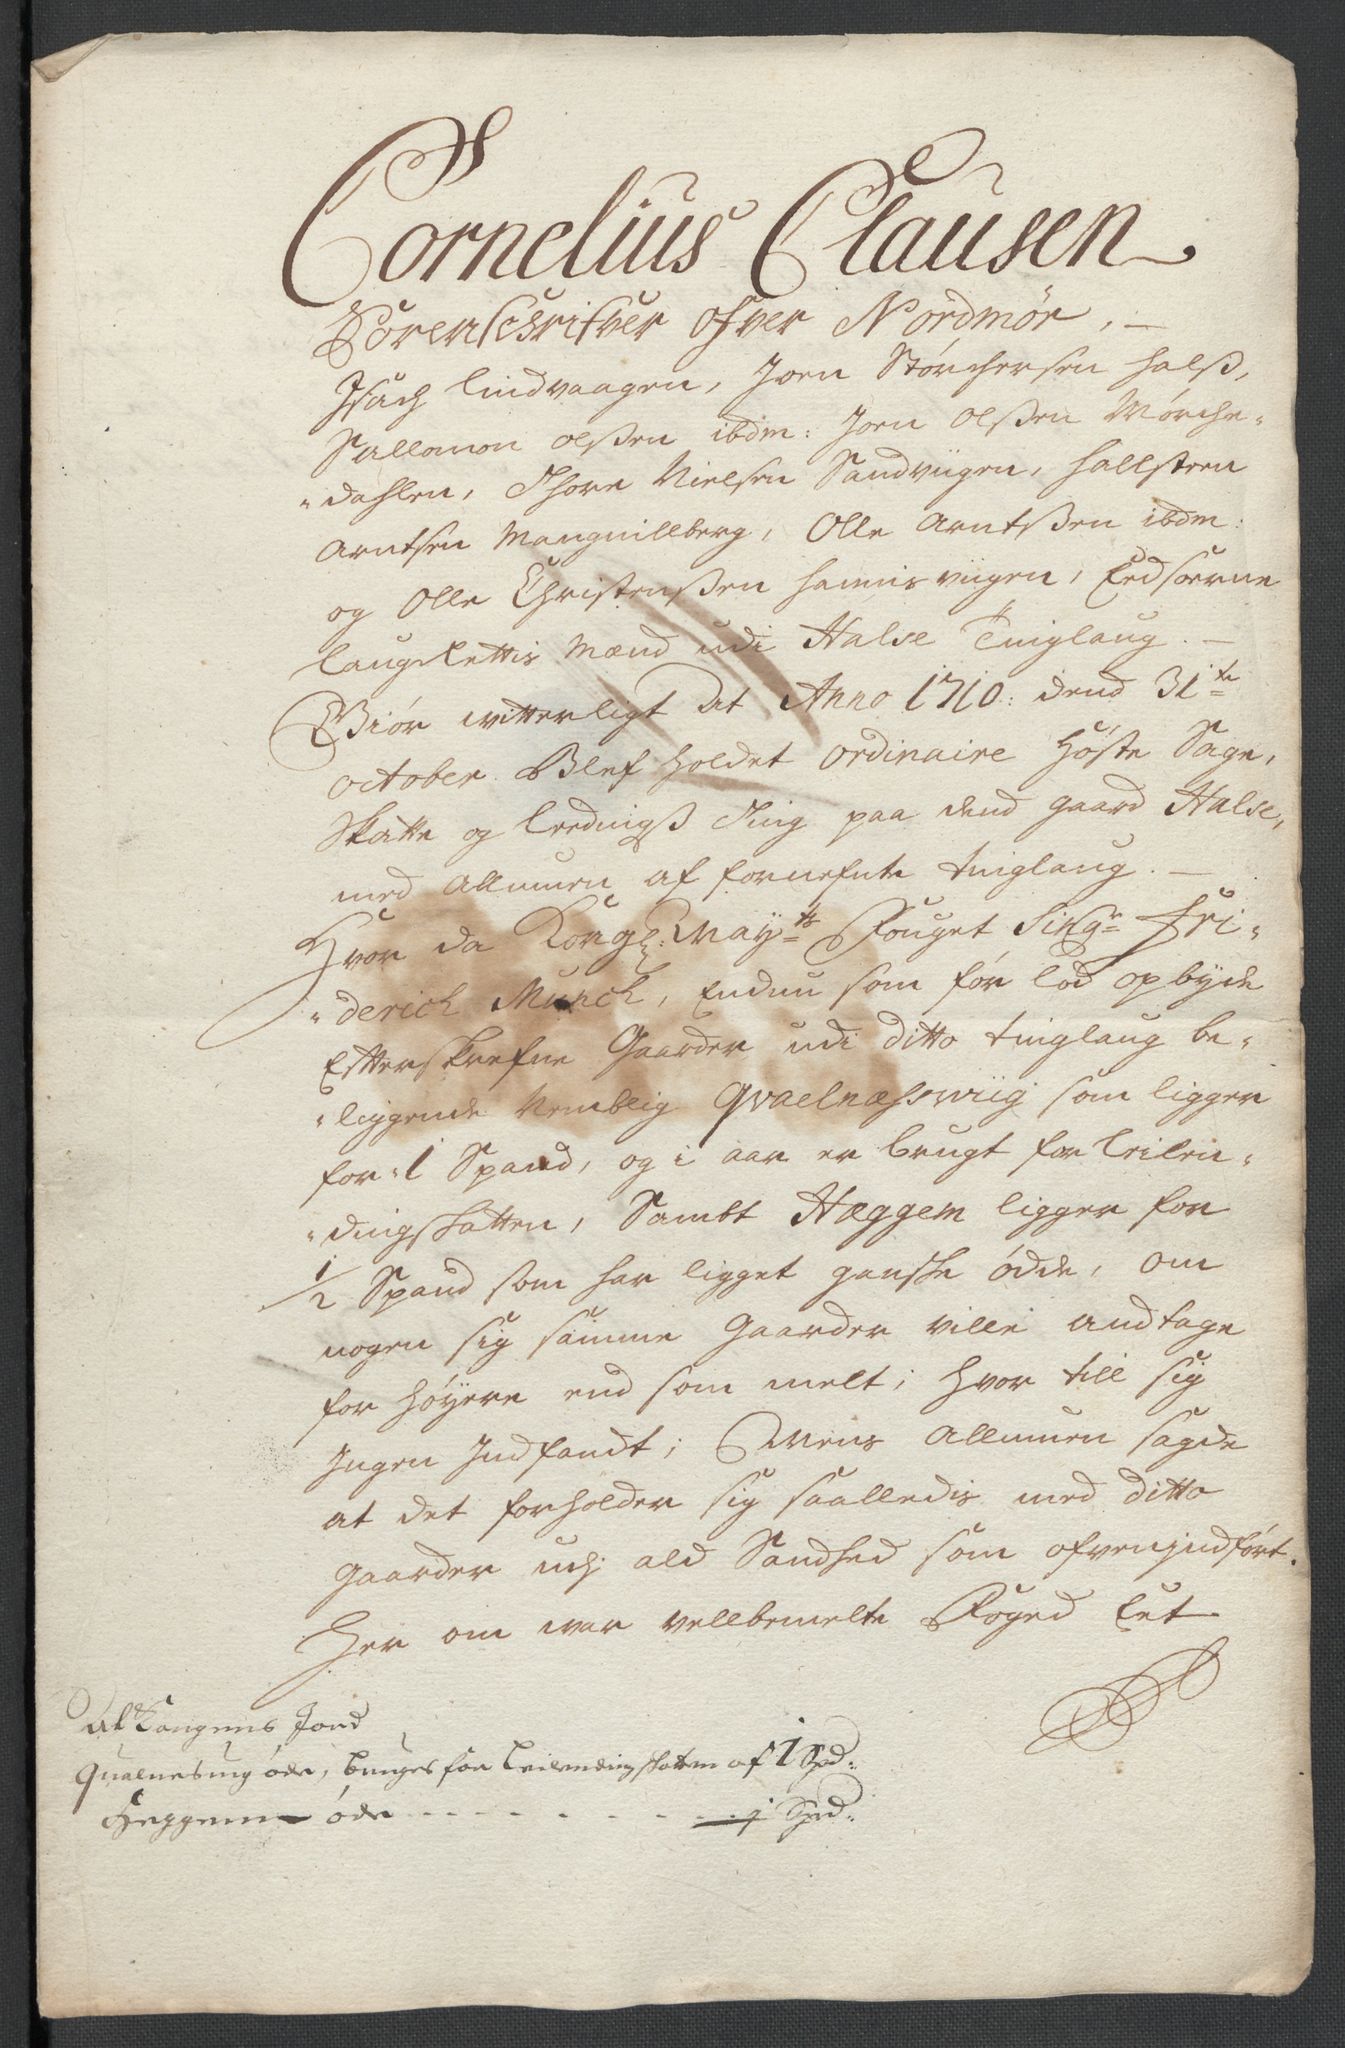 Cornelius Clausen
Sorenschrifver ofver Nordmør, —
Isach Lindvaagen, Joen Størchersen Halsß,
Sallomon Olßen ibdm: Joen Olßen Mørche-
-dahlen, Thore Nielsen Sandviigen, Hallsteen
Arntsen Mangnillberg, Olle Arntßen ibdm:
og Olle Christenßen Hamnisviigen, Eedsoerne
Laugrettis Mænd udi Halse Tinglaug. —
Giør witterligt At Anno 1710: dend 31te
October. Blef holdet Ordinaire Høste Sage,
Skatte og Leednigß Ting paa dend gaard Halse,
med Allmuen af fornefnte tinglaug. —
Hvor da Kongl: Mayts Fouget Sigr Fri-
-derich Munch, Endnu som før lod opbyde
Efterskrefne Gaarder udi ditto tinglaug be-
-liggende Nemblig Qvaelnæsswiig som ligger
for 1 Spand, og i aar er brugt for Leilen-
-dingskatten, Sambt Hæggem ligger for
1/2 Spand som har ligget ganske øde, om
nogen sig samme Gaarder ville andtage
for høyere end som melt; hvor till sig
Ingen Indfandt; Mens Allmuen sagde
at det forholder sig saalledis med ditto
gaarder udj ald Sandhed som ofvenindført.
Her om war vellbemelte Foged Lut
Af Kongens Jord
Qualnesuig øde, bruges for Leilendingskatten af 1 Spd:
Heggem øde - - - - - - - Spd: